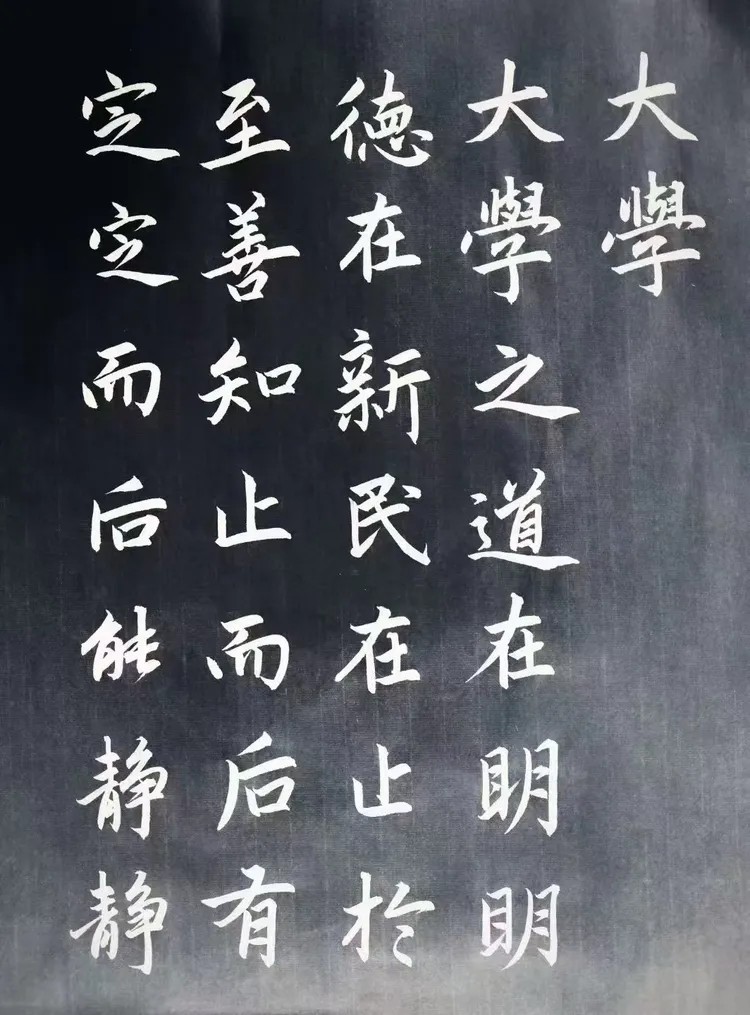 大學
大學之道在明明
德在新民在止於
至善知止而后有
定定而后能静静